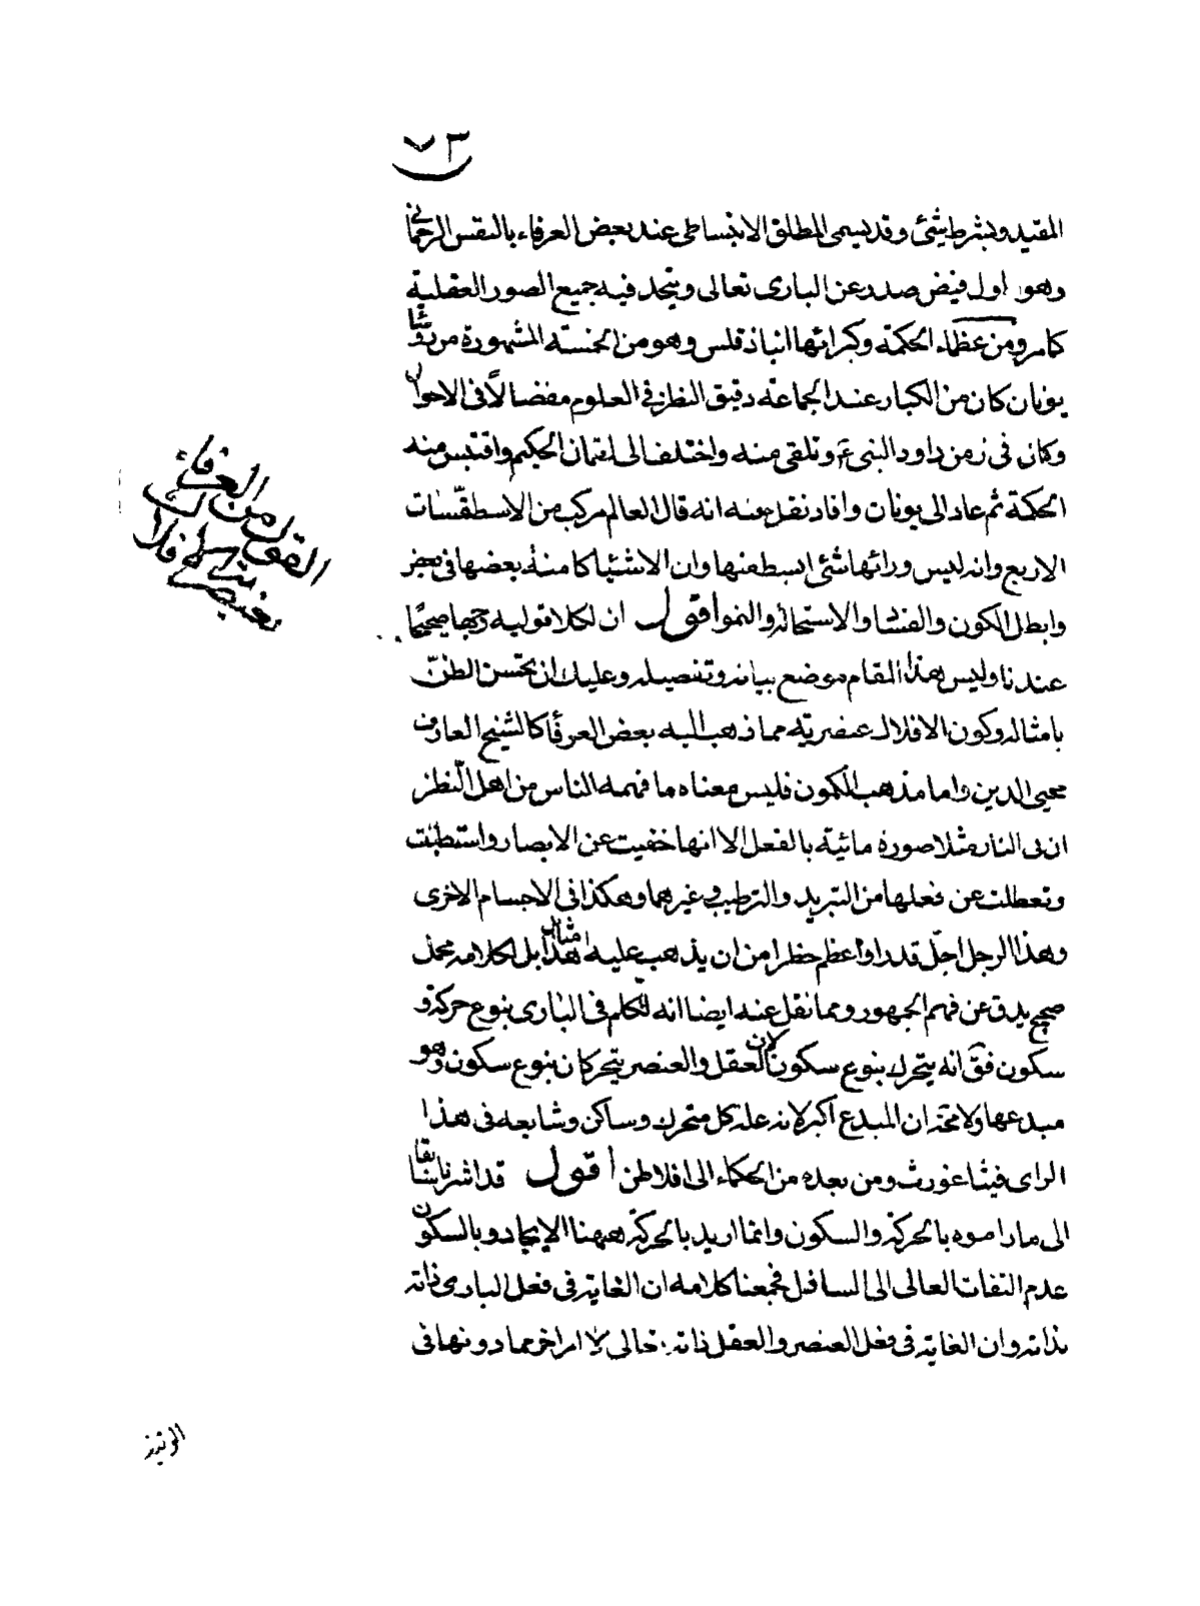 ٧٣
المقيد وبشرط شئ وقد يسمى المطلق الانبساطى عند بعض العرفاء بالنفس الرحمانى
وهو اول فيض صدر عن البارى تعالى ويتحد فيه جميع الصور العقلية
كما مر ومن عظماء الحكمة وكبرائها انباذقلس وهو من الخمسة المشهورة من رؤساء
يونان كان من الكبار عند الجماعة دقيق النظر فى العلوم مفضالاً فى الاحوال
وكان فى زمن داود النبى ع وتلقى منه واختلف الى لقمان الحكيم واقتبس منه
الحكمة ثم عاد الى يونان وافاد نقل عنه انه قال العالم مركب من الاسطقسّات
الاربع وانه ليس ورائها شئ ابسط منها وان الاشياء كامنة بعضها فى بعض
وابطل الكون والفساد والاستحالة والنمو اقول ان لكلا قوليه وجها صحيحًا
عندنا وليس هذا المقام موضع بيانه وتفصيله وعليك ان تحسن الظنّ
بامثاله وكون الافلاك عنصرية مما ذهب اليه بعض العرفاء كالشيخ العارف
محيى الدين واما مذهب الكمون فليس معناه ما فهمه الناس من اهل النظر
ان فى النار مثلا صورة مائية بالفعل الا انها خفيت عن الابصار واستبطنت
وتعطلت عن فعلها من التبريد والترطيب وغيرهما وهكذا فى الاجسام الاخرى
وهذا الرجل اجلّ قدرا واعظم خطرا من ان يذهب عليه امثال هذا بل لكلامه محمل
صحيح يدق عن فهم الجمهور ومما نقل عنه ايضا انه تكلم فى البارى بنوع حركة و
سكون فقَ انه يتحرك بنوع سكون لان العقل والعنصر يتحركان بنوع سكون وهو
مبدعهما ولا محة ان المبدع اكبر لانه علة كل متحرك وساكن وشايعه فى هذا
الراى فيثاغورث ومن بعده من الحكماء الى افلاطن اقول قد اشرنا سابقا
الى ما راموه بالحركة والسكون وانما اريد بالحركة ههنا الايجاد وبالسكون
عدم التفات العالى الى السافل فمعنا كلامه ان الغاية فى فعل البارى ذاته
بذاته وان الغاية فى فعل العنصر والعقل ذاته تعالى لا امر اخر مما دونها فى
القول من العرفاء
بعنصرية الافلاك